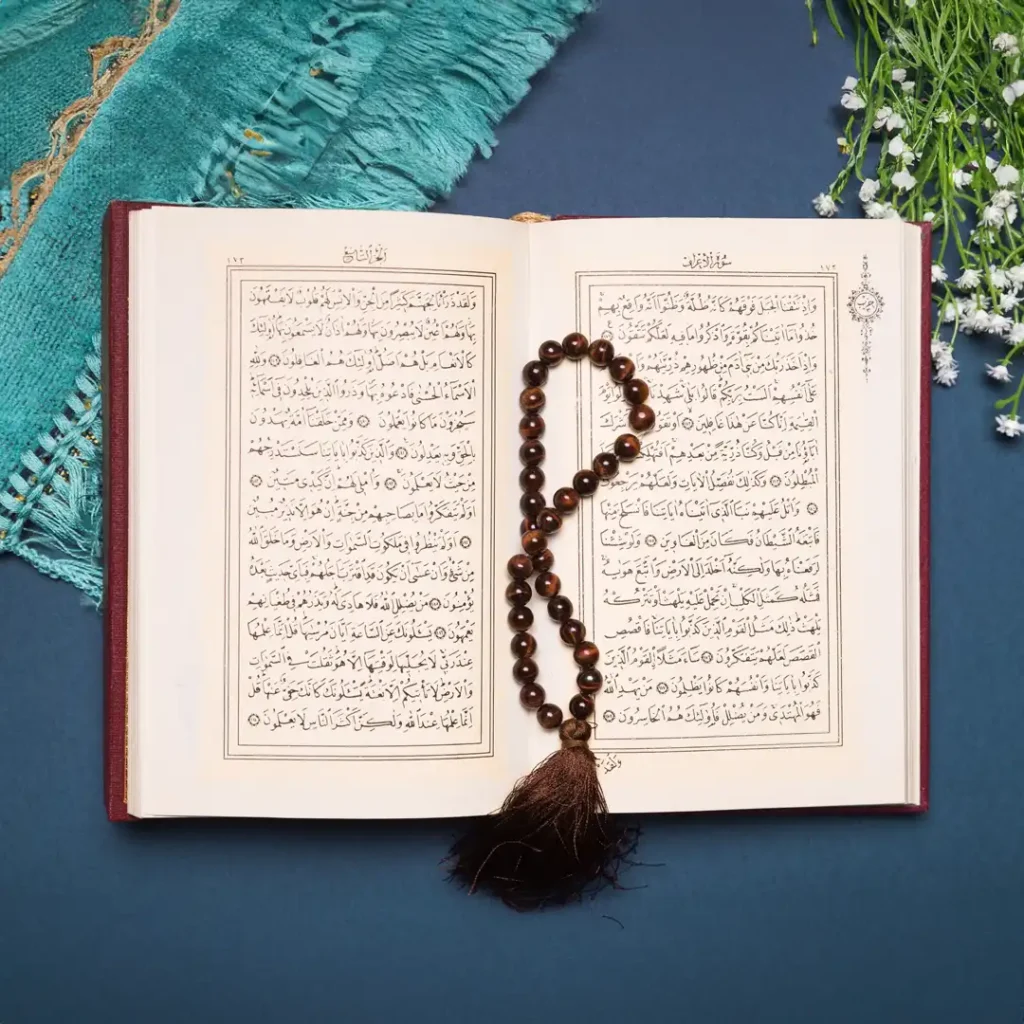 سورة الاعراف
١٧٢
حزب
وَاِذْ نَتَقْنَا الْجَبَلَ فَوْقَهُمْ كَاَنَّهُ ظُلَّةٌ وَظَنُّوا اَنَّهُ وَاقِعٌ بِهِمْ
خُذُوا مَا اٰتَيْنَاكُمْ بِقُوَّةٍ وَاذْكُرُوا مَا فِيهِ لَعَلَّكُمْ تَتَّقُونَ
وَاِذْ اَخَذَ رَبُّكَ مِنْ بَنِي اٰدَمَ مِنْ ظُهُورِهِمْ ذُرِّيَّتَهُمْ
عَلٰى اَنْفُسِهِمْ اَلَسْتُ بِرَبِّكُمْ قَالُوا بَلٰى شَهِدْنَا
الْقِيٰمَةِ اِنَّا كُنَّا عَنْ هٰذَا غَافِلِينَ
اٰبَاؤُنَا مِنْ قَبْلُ وَكُنَّا ذُرِّيَّةً مِنْ بَعْدِهِمْ اَفَتُهْلِكُنَا
الْمُبْطِلُونَ وَكَذٰلِكَ نُفَصِّلُ الْاٰيَاتِ وَلَعَلَّهُمْ يَرْجِعُونَ
وَاتْلُ عَلَيْهِمْ نَبَاَ الَّذِي اٰتَيْنَاهُ اٰيَاتِنَا فَانْسَلَخَ مِنْهَا
فَاَتْبَعَهُ الشَّيْطَانُ فَكَانَ مِنَ الْغَاوِينَ وَلَوْ شِئْنَا
لَرَفَعْنَاهُ بِهَا وَلٰكِنَّهُ اَخْلَدَ اِلَى الْاَرْضِ وَاتَّبَعَ هَوٰيهُ
فَمَثَلُهُ كَمَثَلِ الْكَلْبِ اِنْ تَحْمِلْ عَلَيْهِ يَلْهَثْ اَوْ تَتْرُكْهُ
يَلْهَثْ ذٰلِكَ مَثَلُ الْقَوْمِ الَّذِينَ كَذَّبُوا بِاٰيَاتِنَا فَاقْصُصِ
الْقَصَصَ لَعَلَّهُمْ يَتَفَكَّرُونَ سَاءَ مَثَلًا الْقَوْمُ الَّذِينَ
كَذَّبُوا بِاٰيَاتِنَا وَاَنْفُسَهُمْ كَانُوا يَظْلِمُونَ مَنْ يَهْدِ اللّٰهُ
فَهُوَ الْمُهْتَدِي وَمَنْ يُضْلِلْ فَاُولٰئِكَ هُمُ الْخَاسِرُونَ
وَلَقَدْ
الجزء التاسع
١٧٣
وَلَقَدْ ذَرَاْنَا لِجَهَنَّمَ كَثِيرًا مِنَ الْجِنِّ وَالْاِنْسِ لَهُمْ قُلُوبٌ لَا يَفْقَهُونَ
بِهَا وَلَهُمْ اَعْيُنٌ لَا يُبْصِرُونَ بِهَا وَلَهُمْ اٰذَانٌ لَا يَسْمَعُونَ بِهَا اُولٰئِكَ
كَالْاَنْعَامِ بَلْ هُمْ اَضَلُّ اُولٰئِكَ هُمُ الْغَافِلُونَ وَلِلّٰهِ
الْاَسْمَاءُ الْحُسْنٰى فَادْعُوهُ بِهَا وَذَرُوا الَّذِينَ يُلْحِدُونَ فِي اَسْمَائِهِ
سَيُجْزَوْنَ مَا كَانُوا يَعْمَلُونَ وَمِمَّنْ خَلَقْنَا اُمَّةٌ يَهْدُونَ
بِالْحَقِّ وَبِهِ يَعْدِلُونَ وَالَّذِينَ كَذَّبُوا بِاٰيَاتِنَا سَنَسْتَدْرِجُهُمْ
مِنْ حَيْثُ لَا يَعْلَمُونَ وَاُمْلِي لَهُمْ اِنَّ كَيْدِي مَتِينٌ
اَوَلَمْ يَتَفَكَّرُوا مَا بِصَاحِبِهِمْ مِنْ جِنَّةٍ اِنْ هُوَ اِلَّا نَذِيرٌ مُبِينٌ
اَوَلَمْ يَنْظُرُوا فِي مَلَكُوتِ السَّمٰوَاتِ وَالْاَرْضِ وَمَا خَلَقَ اللّٰهُ
مِنْ شَيْءٍ وَاَنْ عَسٰى اَنْ يَكُونَ قَدِ اقْتَرَبَ اَجَلُهُمْ فَبِاَيِّ حَدِيثٍ بَعْدَهُ
يُؤْمِنُونَ مَنْ يُضْلِلِ اللّٰهُ فَلَا هَادِيَ لَهُ وَيَذَرُهُمْ فِي طُغْيَانِهِمْ
يَعْمَهُونَ يَسْـَٔلُونَكَ عَنِ السَّاعَةِ اَيَّانَ مُرْسٰيهَا قُلْ اِنَّمَا عِلْمُهَا
عِنْدَ رَبِّي لَا يُجَلِّيهَا لِوَقْتِهَا اِلَّا هُوَ ثَقُلَتْ فِي السَّمٰوَاتِ
وَالْاَرْضِ لَا تَاْتِيكُمْ اِلَّا بَغْتَةً يَسْـَٔلُونَكَ كَاَنَّكَ حَفِيٌّ عَنْهَا قُلْ
اِنَّمَا عِلْمُهَا عِنْدَ اللّٰهِ وَلٰكِنَّ اَكْثَرَ النَّاسِ لَا يَعْلَمُونَ